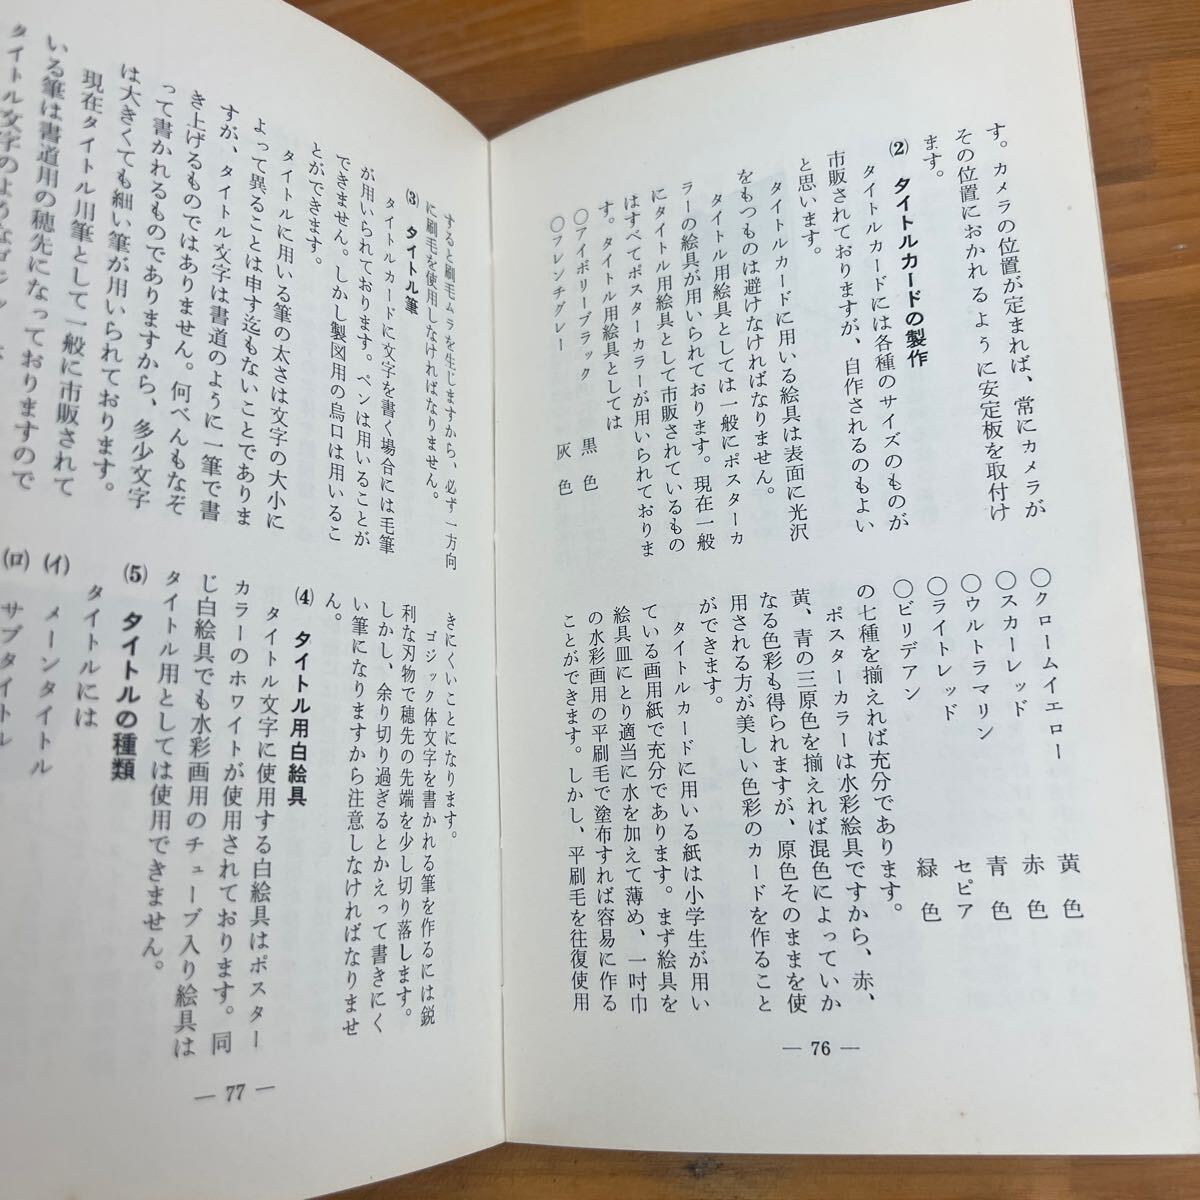 す。カメラの位置が定まれば、常にカメラが
その位置におかれるように安定板を取付け
ます。
(2) タイトルカードの製作
タイトルカードには各種のサイズのものが
市販されておりますが、自作されるのもよい
と思います。
タイトルカードに用いる絵具は表面に光沢
をもつものは避けなければなりません。
タイトル用絵具としては一般にポスターカ
ラーの絵具が用いられております。現在一般
にタイトル用絵具として市販されているもの
はすべてポスターカラーが用いられておりま
す。タイトル用絵具としては
○アイボリーブラック 黒色
○フレンチグレー 灰色
○クロームイエロー 黄色
○スカーレッド 赤色
○ウルトラマリン 青色
○ライトレッド セピア
○ビリデアン 緑色
の七種を揃えれば充分であります。
ポスターカラーは水彩絵具ですから、赤、
黄、青の三原色を揃えれば混色によっていか
なる色彩も得られますが、原色そのままを使
用される方が美しい色彩のカードを作ること
ができます。
タイトルカードに用いる紙は小学生が用い
ている画用紙で充分であります。まず絵具を
絵具皿にとり適当に水を加えて薄め、一吋巾
の水彩画用の平刷毛で塗布すれば容易に作る
ことができます。しかし、平刷毛を往復使用
— 76 —
すると刷毛ムラを生じますから、必ず一方向
に刷毛を使用しなければなりません。
(3) タイトル筆
タイトルカードに文字を書く場合には毛筆
が用いられております。ペンは用いることが
できません。しかし製図用の烏口は用いるこ
とができます。
タイトルに用いる筆の太さは文字の大小に
よって異ることは申す迄もないことでありま
すが、タイトル文字は書道のように一筆で書
き上げるものではありません。何べんもなぞ
って書かれるものでありますから、多少文字
は大きくても細い筆が用いられております。
現在タイトル用筆として一般に市販されて
いる筆は書道用の穂先になっておりますので
タイトル文字のような
きにくいことになります。
ゴジック体文字を書かれる筆を作るには鋭
利な刃物で穂先の先端を少し切り落します。
しかし、余り切り過ぎるとかえって書きにく
い筆になりますから注意しなければなりませ
ん。
(4) タイトル用白絵具
タイトル文字に使用する白絵具はポスター
カラーのホワイトが使用されております。同
じ白絵具でも水彩画用のチューブ入り絵具は
タイトル用としては使用できません。
(5) タイトルの種類
タイトルには
(イ) メーンタイトル
(ロ) サブタイトル
— 77 —